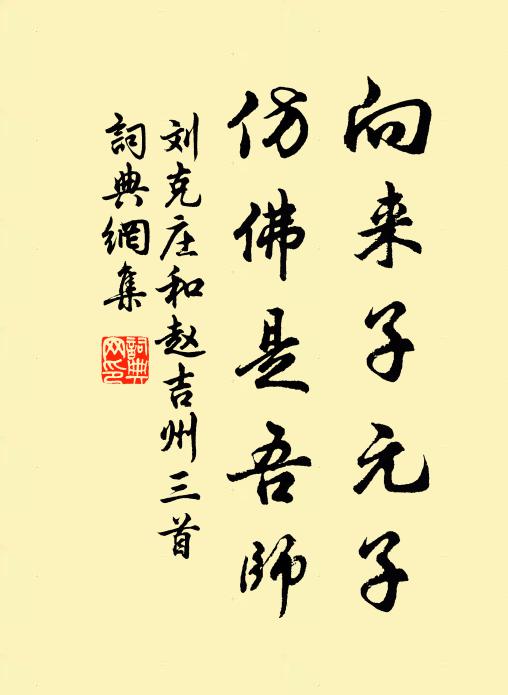 向来子元子
仿佛是吾師
刘克庄和赵吉州三首
詞典網集
詞典网印